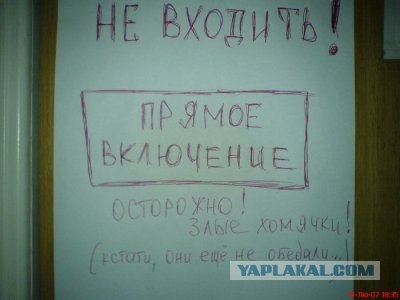 НЕ ВХОДИТЬ!
ПРЯМОЕ
ВКЛЮЧЕНИЕ
ОСТОРОЖНО!
ЗЛЫЕ ХОМЯЧКИ!
(кстати, они ещё не обедали...)
YAPLAKAL.COM